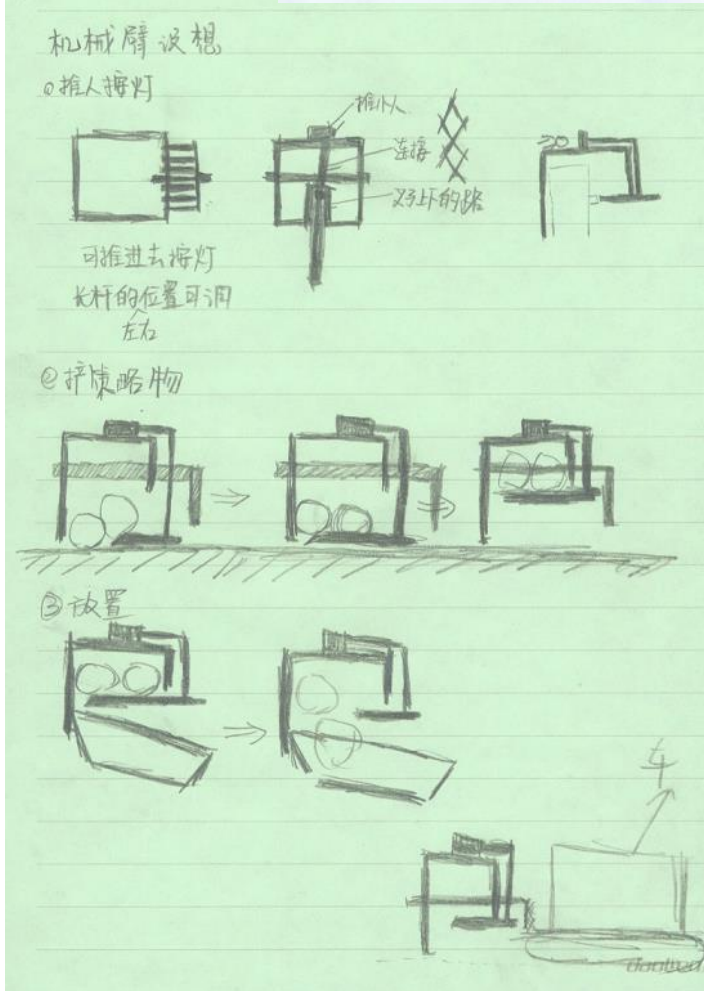 机械臂设想
①推人按灯
推小人
连接
叉子上下的路
可推进去按灯
长杆的位置可调
左右
②护策略物
③放置
车